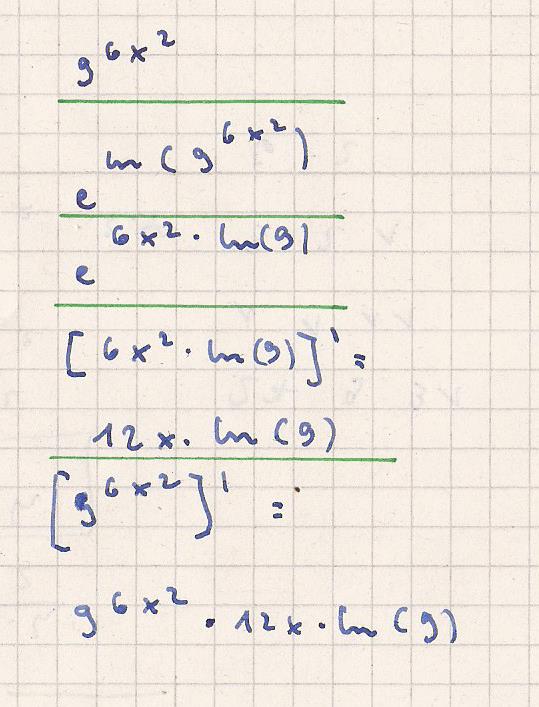 9^{6x^2}
e^{ln(9^{6x^2})}
e^{6x^2 · ln(9)}
[6x^2 · ln(9)]' =
12x · ln(9)
[9^{6x^2}]' =
9^{6x^2} · 12x · ln(9)